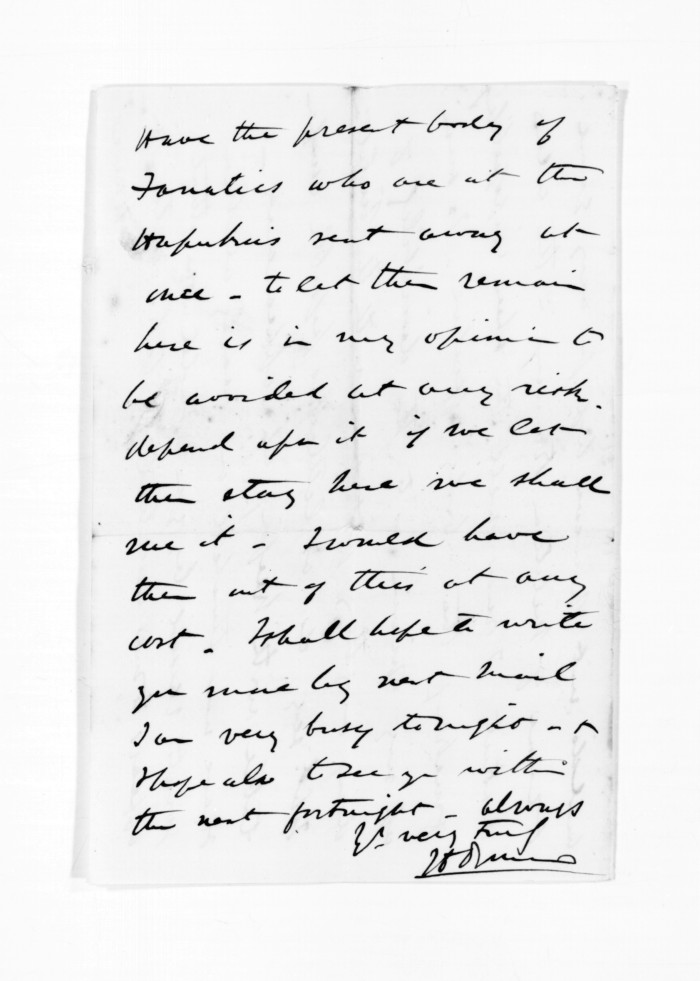 Have the present body of
Fanatics who are at the
sent away at
once - to let them remain
here is in my opinion to
be avoided at any risk.
depend upon it if we let
them stay here we shall
rue it - I would have
them out of this at any
cost. I shall hope to write
you more by next Mail
I am very busy tonight - &
I hope also to see you within
the next fortnight - always
Yrs very truly